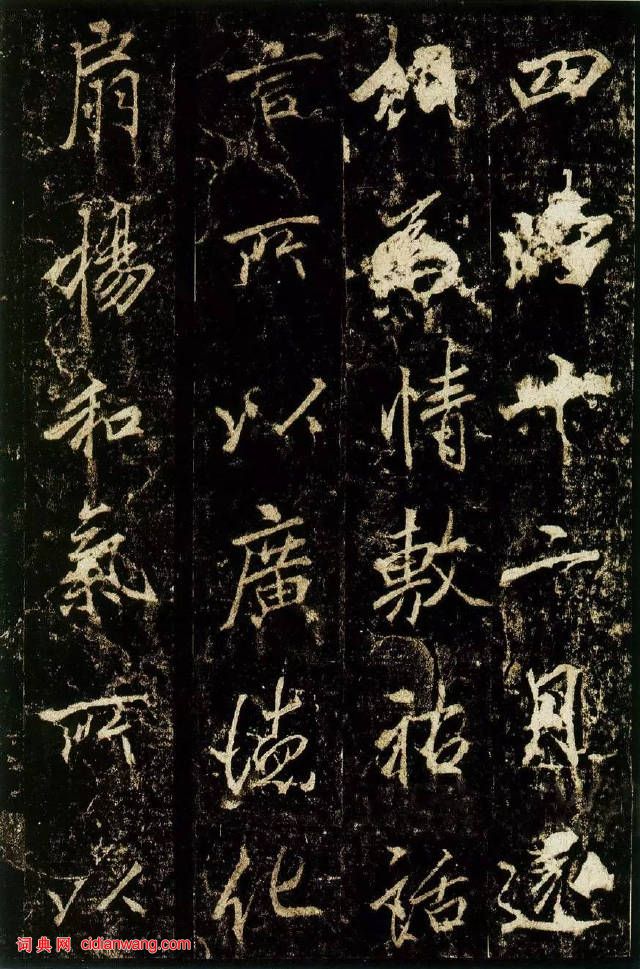 四時十二月還
相爲情敷祐話
言所以廣德化
扇揚和氣所以
词典网 cidianwang.com